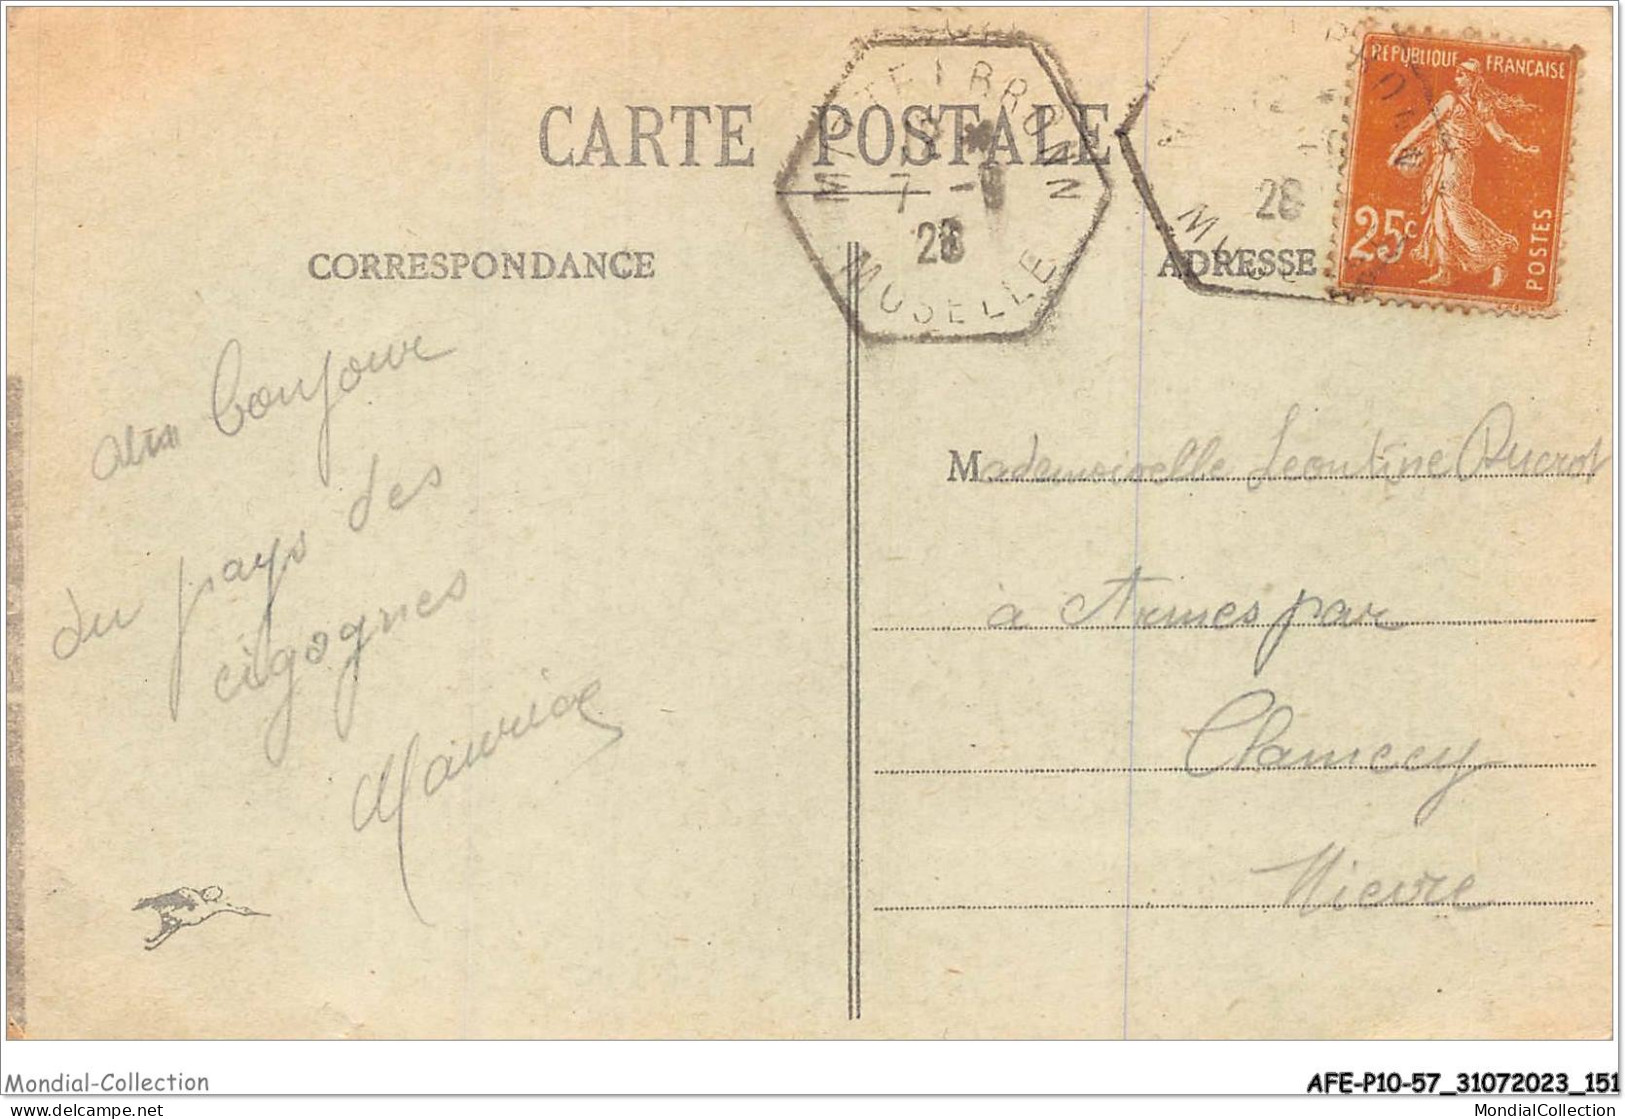 CARTE POSTALE
CORRESPONDANCE
ADRESSE
REPUBLIQUE FRANÇAISE
25c
POSTES
MOSELLE
7 -
28
28
Bonjour
du pays des
cigognes
Maurice
Mademoiselle Leontine Ducrot
à Armes par
Clamecy
Nievre
Mondial-Collection
AFE-P10-57_31072023_151
delcampe.net
MondialCollection